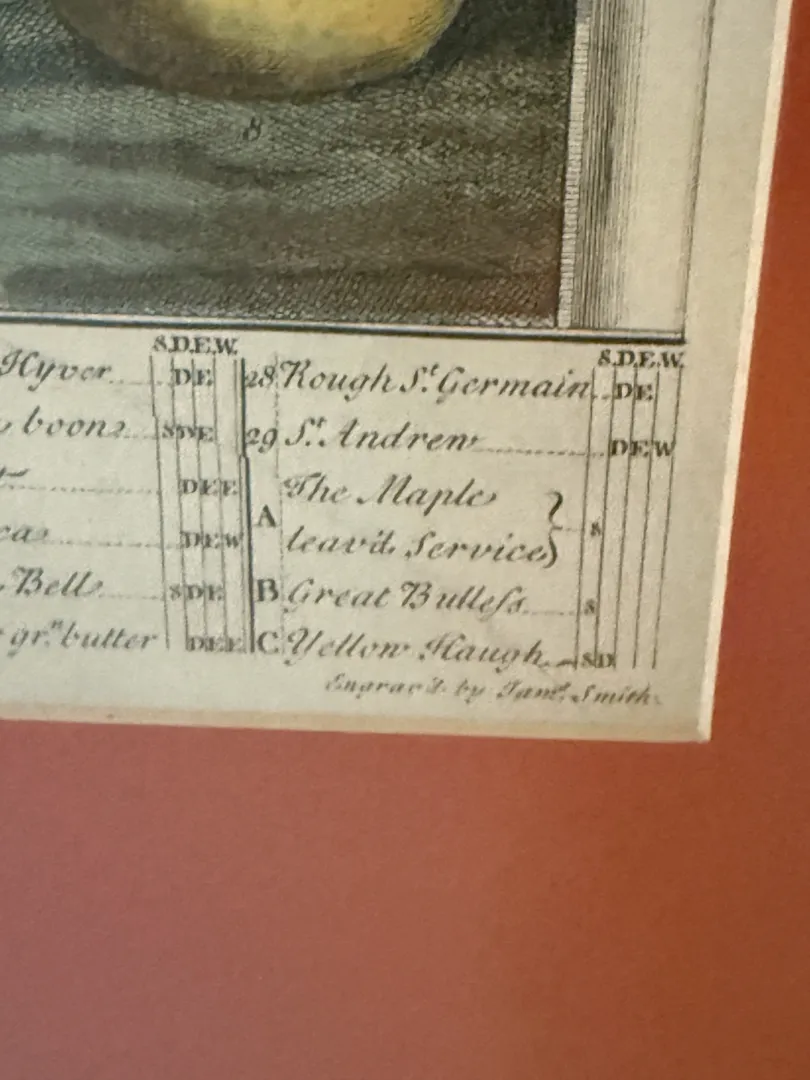 8
S.D.E.W. S.D.E.W.
Hyver D E 28 Rough S.t Germain D E
boon S D E 29 S.t Andrew D E W
D E E A The Maple
D E W leav'd Service S
Bell S D E B Great Bulless S
gr.n butter D E E C Yellow Haugh S D
Engrav'd by Smith